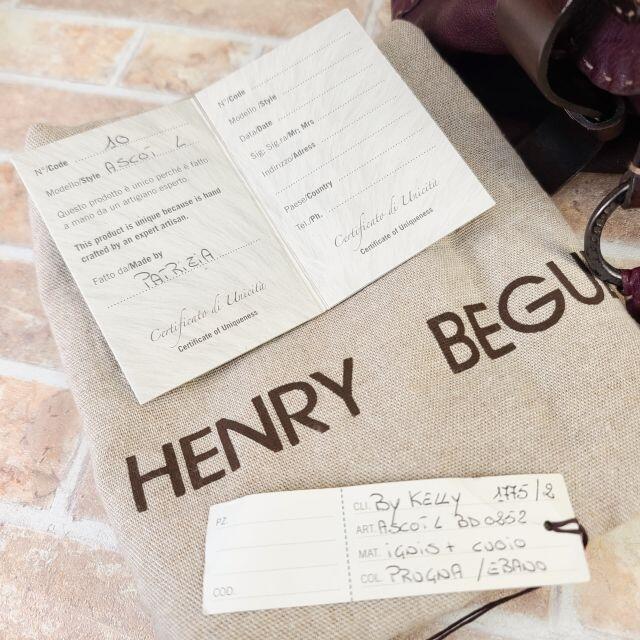 N°/Code 10
Modello/Style ASCOT L
Questo prodotto è unico perché è fatto
a mano da un artigiano esperto.
This product is unique because is hand
crafted by an expert artisan.
Fatto da/Made by
PATRIZIA
Certificato di Unicità
Certificate of Uniqueness
N°/Code
Modello/Style
Data/Date
Sig. Sig.ra/Mr. Mrs
Indirizzo/Adress
Paese/Country
Tel./Ph.
Certificato di Unicità
Certificate of Uniqueness
HENRY BEGU
PZ.
COD.
CLI. By KELLY 1775/2
ART. ASCOT L BD0252
MAT. IGNIS + CUOIO
COL. PRUGNA / EBANO